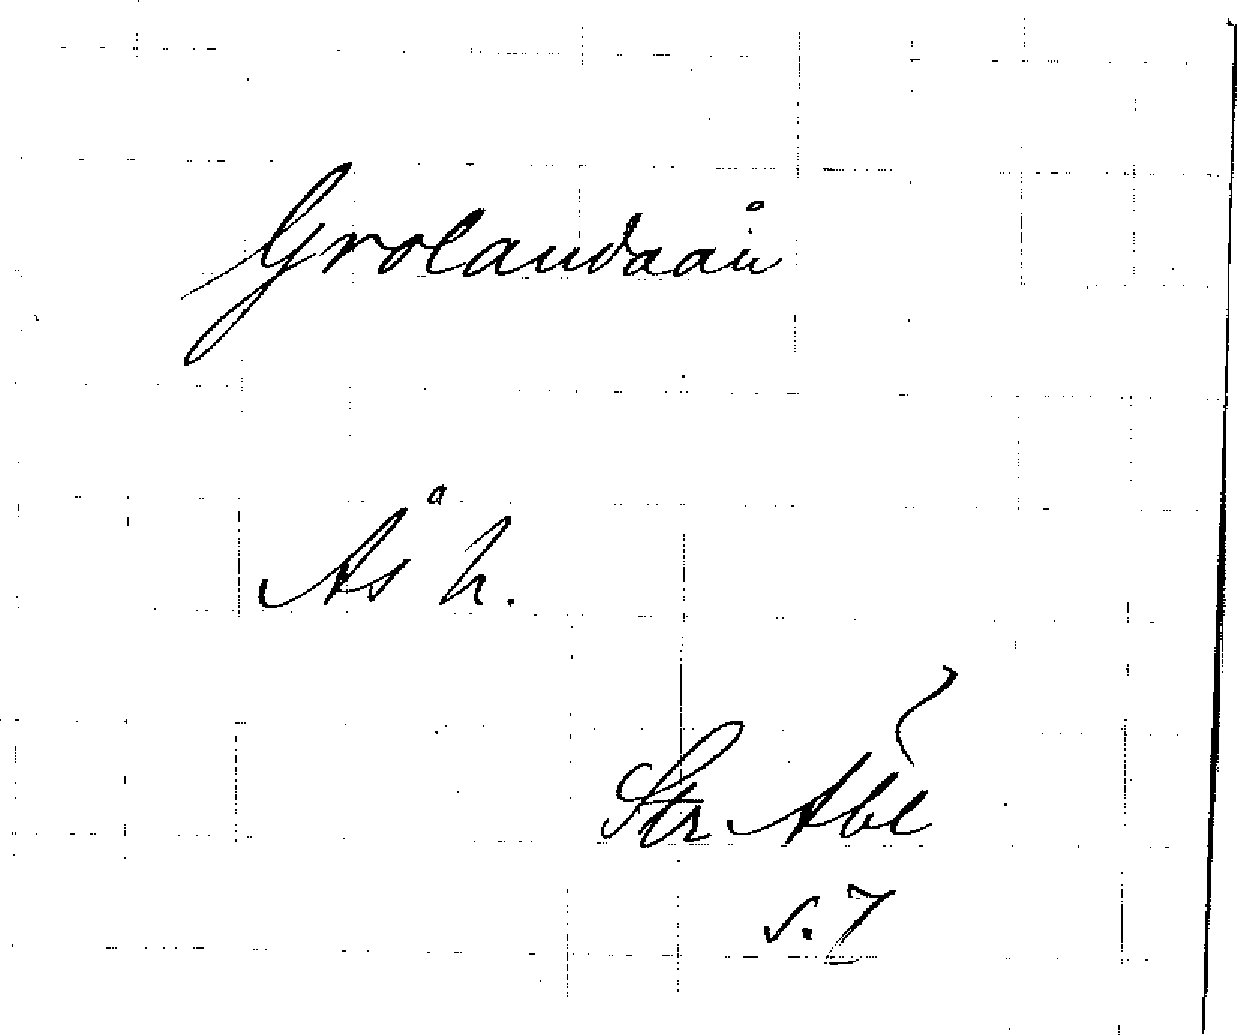 Grolandaån
Ås h.
Str
s. 7